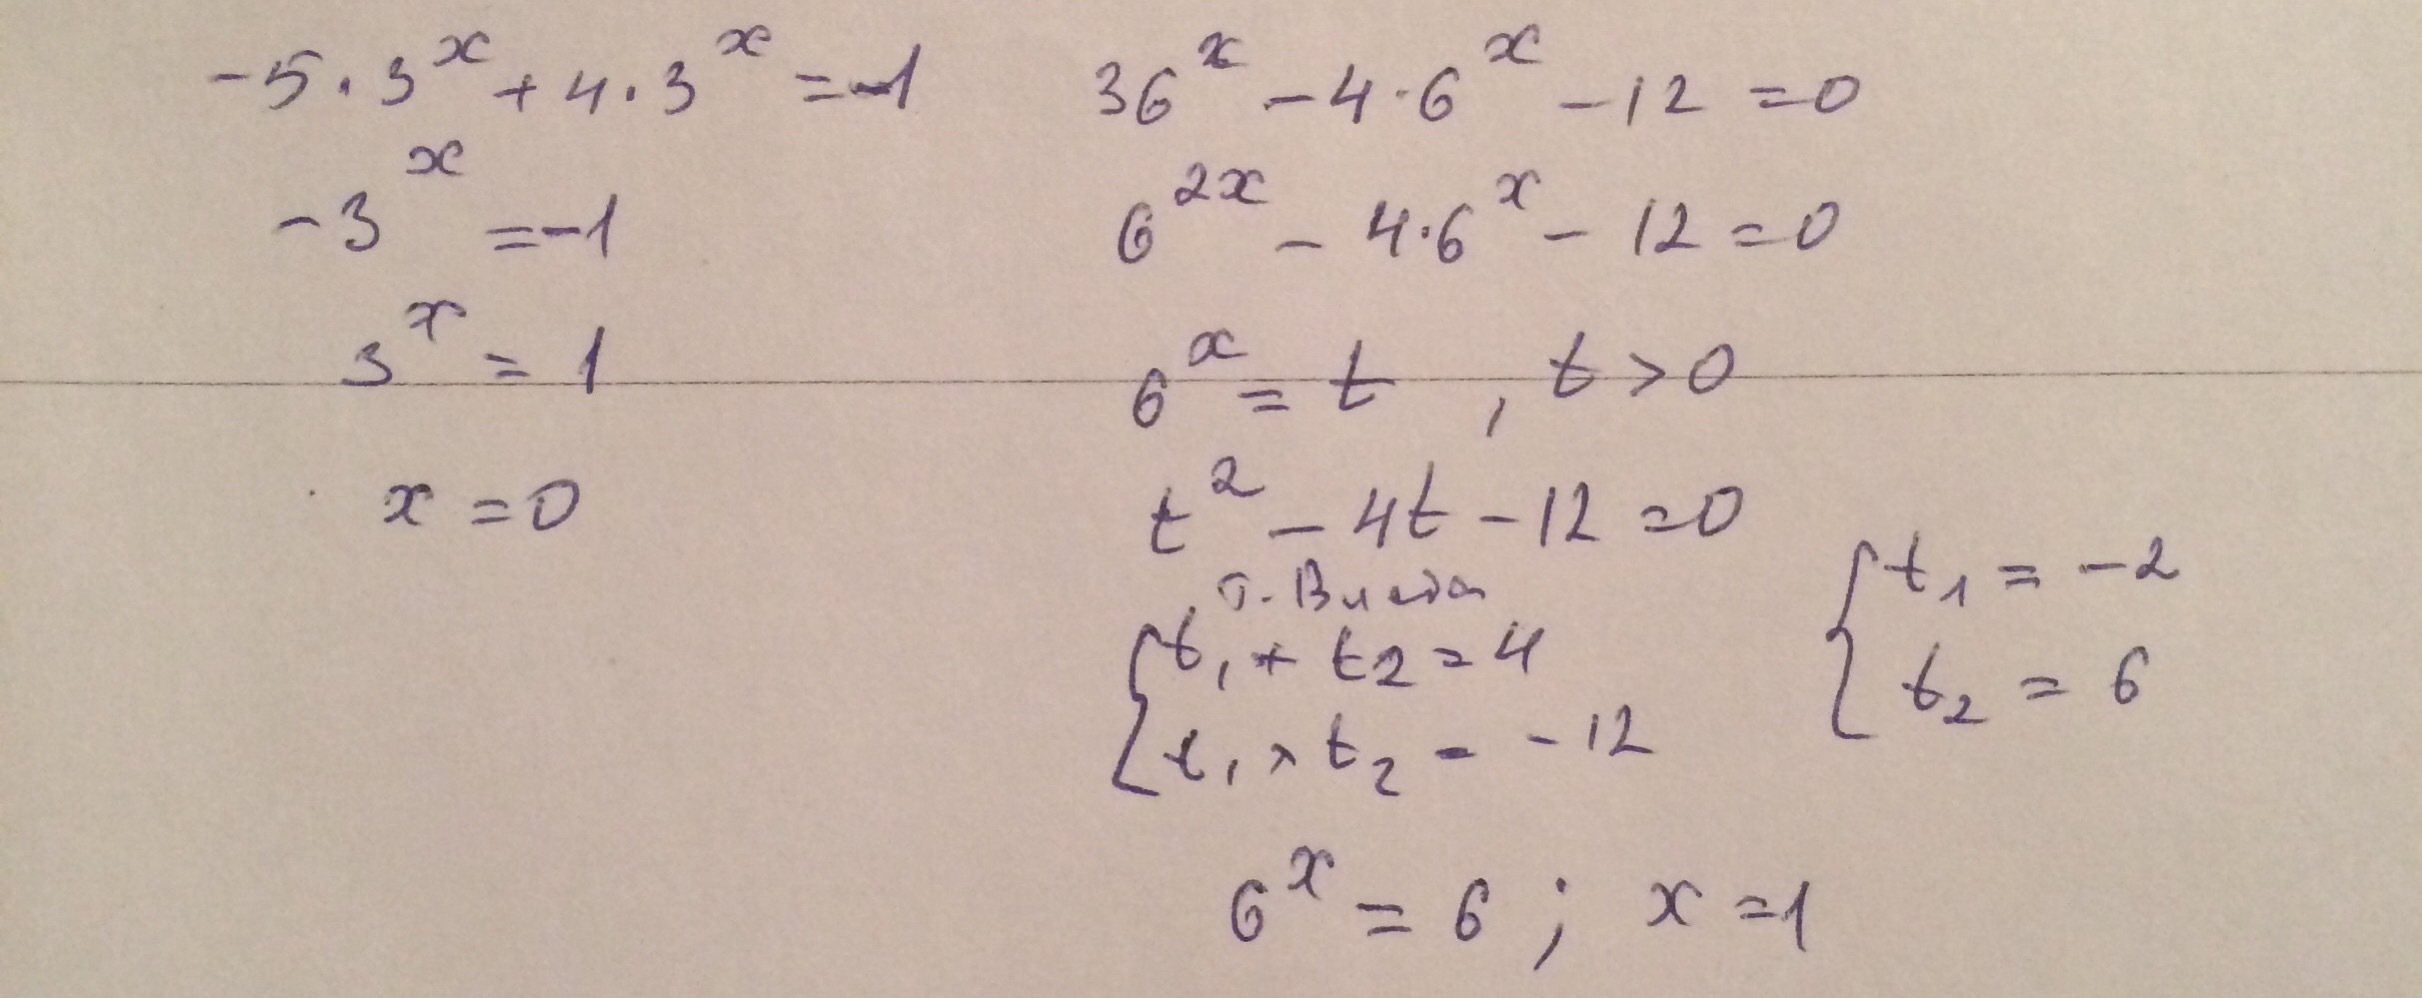 -5·3^x + 4·3^x = -1
-3^x = -1
3^x = 1
x = 0
36^x - 4·6^x - 12 = 0
6^{2x} - 4·6^x - 12 = 0
6^x = t , t > 0
t^2 - 4t - 12 = 0
т. Виета
{ t_1 + t_2 = 4
{ t_1 × t_2 = -12
{ t_1 = -2
{ t_2 = 6
6^x = 6 ; x = 1